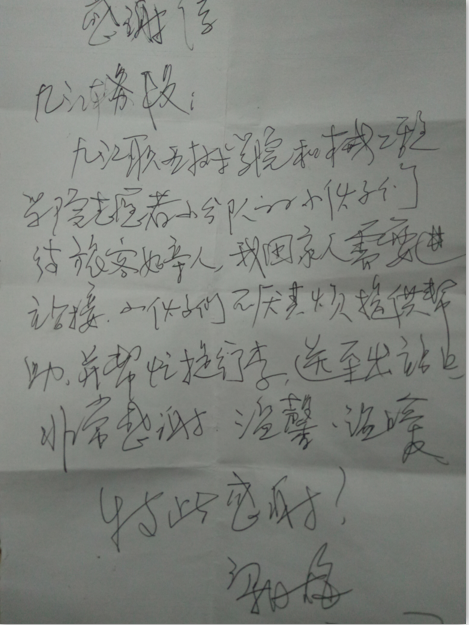 感谢信
九江车务段：
九江职业技术学院和机械工程
学院志愿者小分队的小伙子们
待旅客如亲人，我因家人需要进
站接.小伙子们不厌其烦提供帮
助，并帮忙提行李，送至出站口
非常感谢 温馨·温暖
特此感谢！